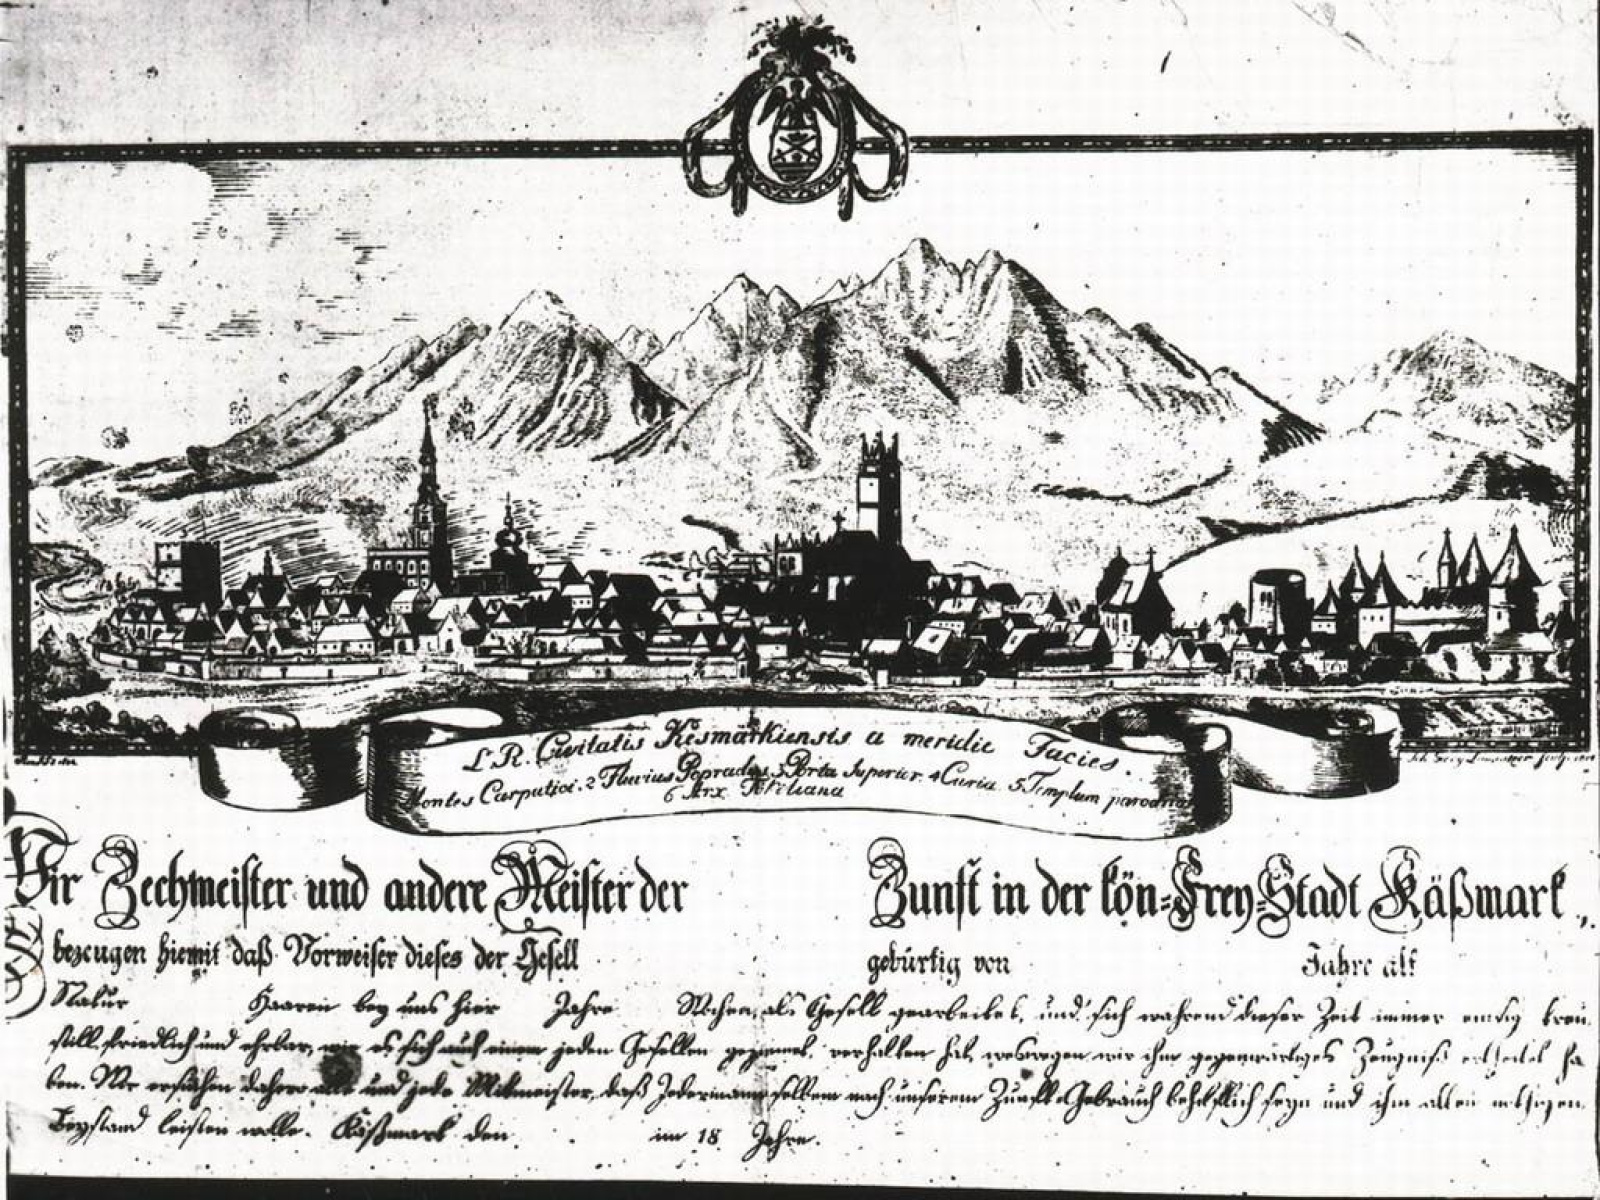 L. R. Civitatis Kesmarkiensis a meridie Facies.
Montes Carpatici. 2 Fluvius Popradus. 3 Porta Superior. 4 Curia. 5 Templum
6 Arx
Wir Zechmeister und andere Meister der Zunft in der kön=Frey=Stadt Käßmark,
bezeugen hiemit daß Vorweiser dieses der Gesell gebürtig von Jahre alt
Statur Haaren bey uns hier Jahre Wochen, als Gesell gearbeitet, und sich während dieser Zeit immer emsig treu,
still, friedlich und ehrbar, wie es sich auch einem jeden Gesellen geziemet, verhalten hat, weswegen wir ihm gegenwärtiges Zeugniß ertheilet ha
ben. Wir ersuchen daher alle und jede Mitmeister, daß Jedermann selbem nach unserem Zunft-Gebrauch behilflich seyn und ihm allen nöthigen
Beystand leisten wolle. Käßmark den im 18 Jahre.